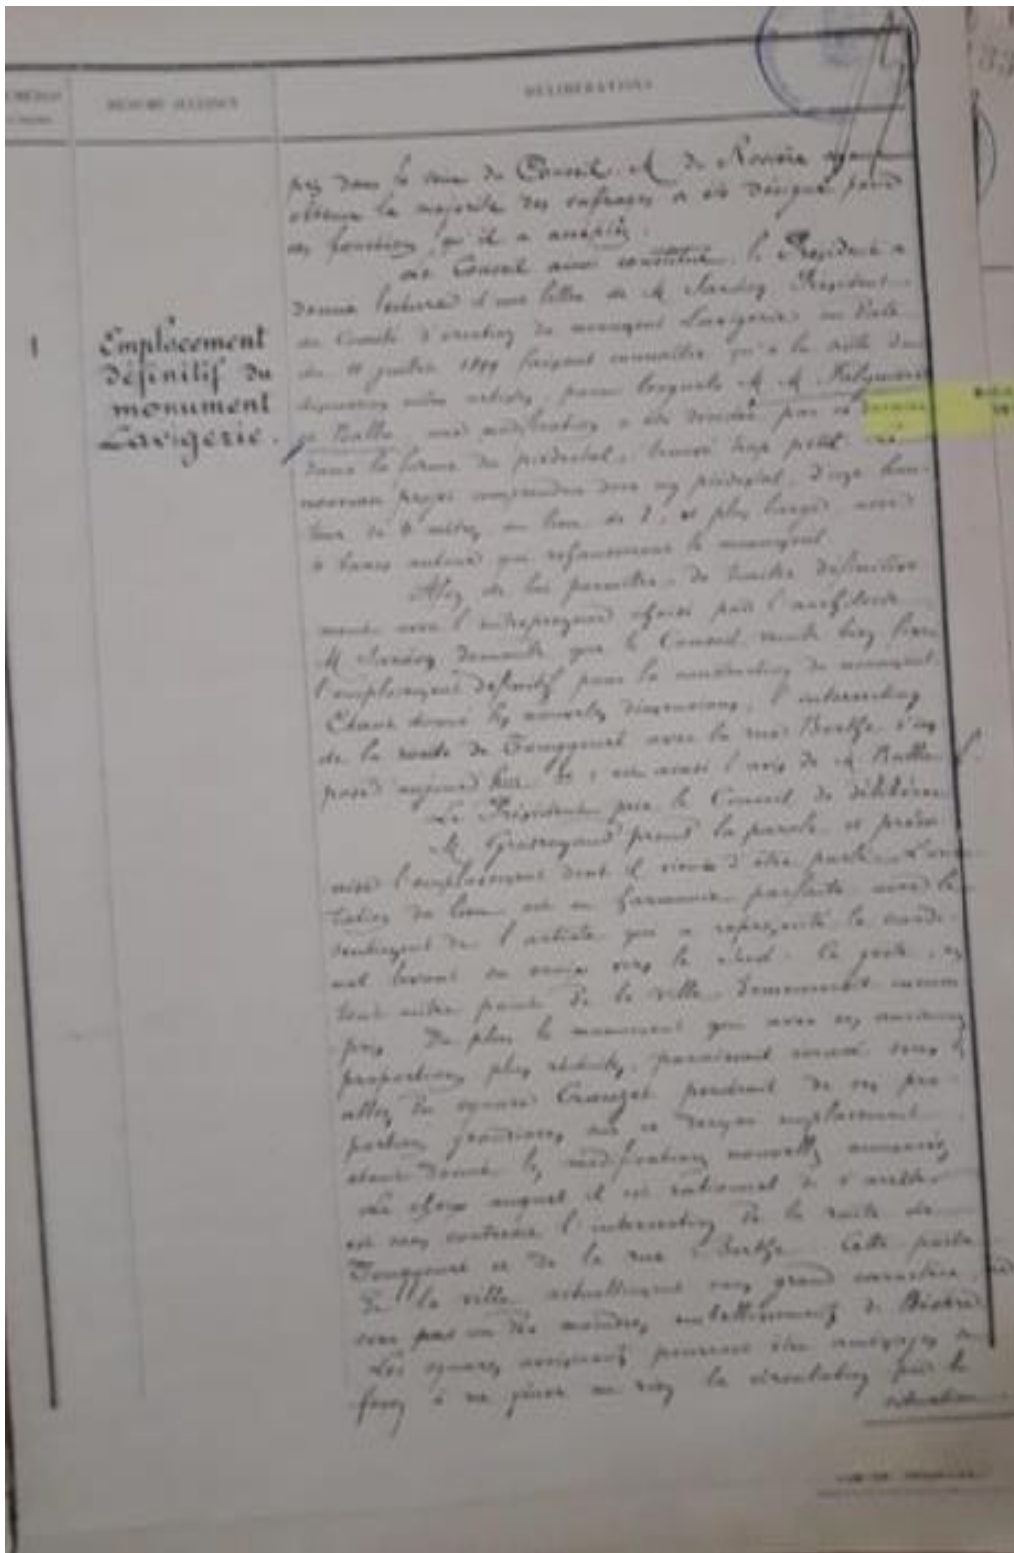 RÉSUMÉ SUCCINCT
DÉLIBÉRATIONS
pris dans le sein du Conseil. M. de Rosière ayant
obtenu la majorité des sufrages a été désigné pour
ces fonctions qu'il a acceptées.
Le Conseil ainsi constitué, le Président a
donné lecture d'une lettre de M. Président
du Comité d'érection du monument Lavigerie en date
du 11 juillet 1899 faisant connaître qu'à la suite du
1
Emplacement
définitif du
monument
Lavigerie.
artistes, parmi lesquels M. M. Falguière
et Ballu, une modification a été décidée par ce dernier
dans la forme du piédestal, trouvé trop petit. Le
nouveau projet comprendra donc un piédestal, d'une hau-
teur de 4 mètres au lieu de 2, et plus large, avec
4 bancs autour qui rehausseront le monument.
Afin de lui permettre de traiter définitive
ment avec l'entrepreneur choisi par l'architecte
M. demande que le Conseil veuille bien fixer
l'emplacement définitif pour la construction du monument.
Étant donné les nouvelles dimensions, l'intersection
de la route de Touggourt avec la rue Berthe s'im
pose aujourd'hui. C'est aussi l'avis de M. Ballu.
Le Président prie le Conseil de délibérer
M. prend la parole et préco
nise l'emplacement dont il vient d'être parlé. L'orien
tation du lieu est en harmonie parfaite avec le
sentiment de l'artiste qui a représenté le cardi
nal levant sa croix vers le sud. Ce geste, en
tout autre point de la ville,
De plus le monument qui avec ses anciennes
proportions plus réduites, paraissait sous les
allées du square Crouzet perdrait de ses pro
portions grandioses, sur ce dernier emplacement
étant donné les modifications nouvelles annoncées
Le choix auquel il est rationnel de s'arrêter
est sans contredit l'intersection de la route de
Touggourt et de la rue Berthe. Cette partie
de la ville actuellement sans grand caractère, ne
sera pas un des moindres embellissements de Biskra.
Les squares avoisinants pourront être aménagés de
façon à ne gêner en rien la circulation par la
situation